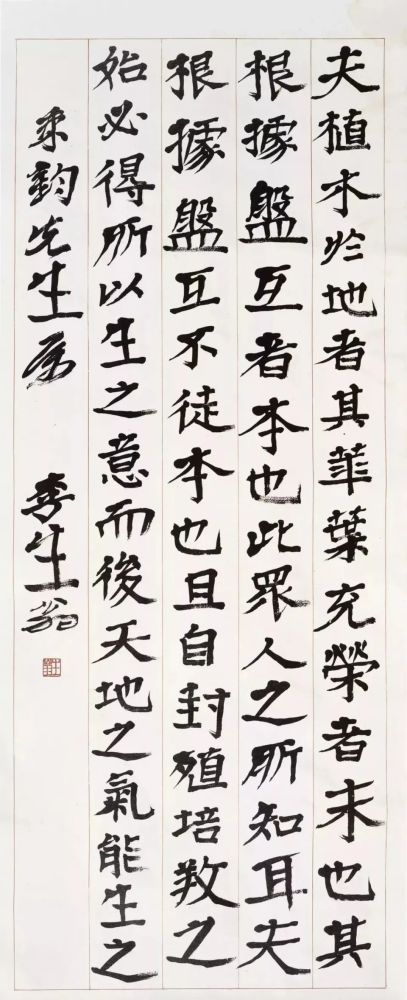 夫植木於地者其華葉充榮者末也其
根據盤互者本也此眾人之所知耳夫
根據盤互不徒本也且自封殖培養之
始必得所以生之意而後天地之氣能生之
先生屬
李生翁